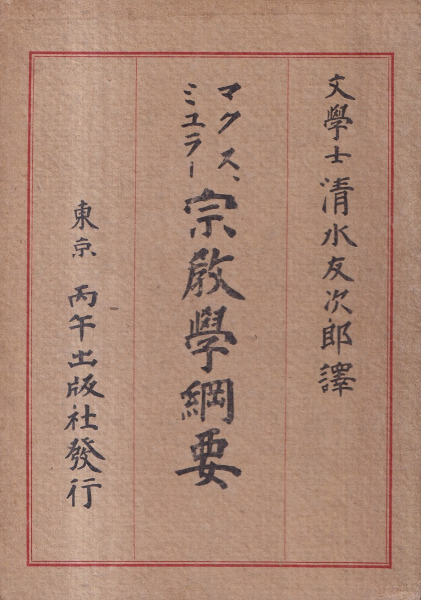 文學士 清水友次郎譯
マクス、
ミユラー
宗敎學綱要
東京 丙午出版社發行